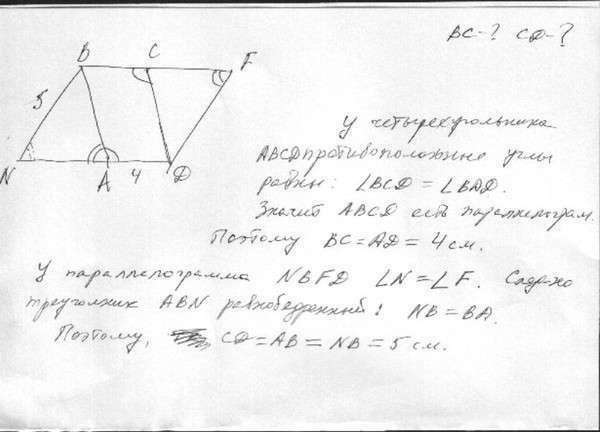 BC-? CD-?
B C F
5
N A 4 D
У четырехугольника
ABCD противоположные углы
равны: ∠BCD = ∠BAD.
Значит ABCD есть параллелограм.
Поэтому BC = AD = 4 см.
У параллелограмма NBFD ∠N = ∠F. След-но
треуголник ABN равнобедренный: NB = BA.
Поэтому, CD = AB = NB = 5 см.